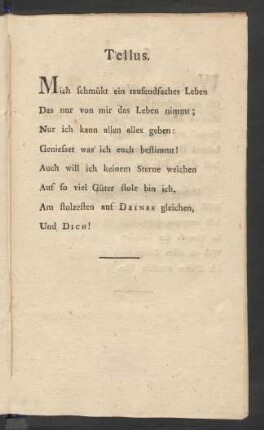 Tellus.
Mich schmükt ein tausendfaches Leben
Das nur von mir das Leben nimmt;
Nur ich kann allen alles geben:
Geniesset was ich euch bestimmt!
Auch will ich keinem Sterne weichen
Auf so viel Güter stolz bin ich,
Am stolzesten auf DEINES gleichen,
Und DICH!